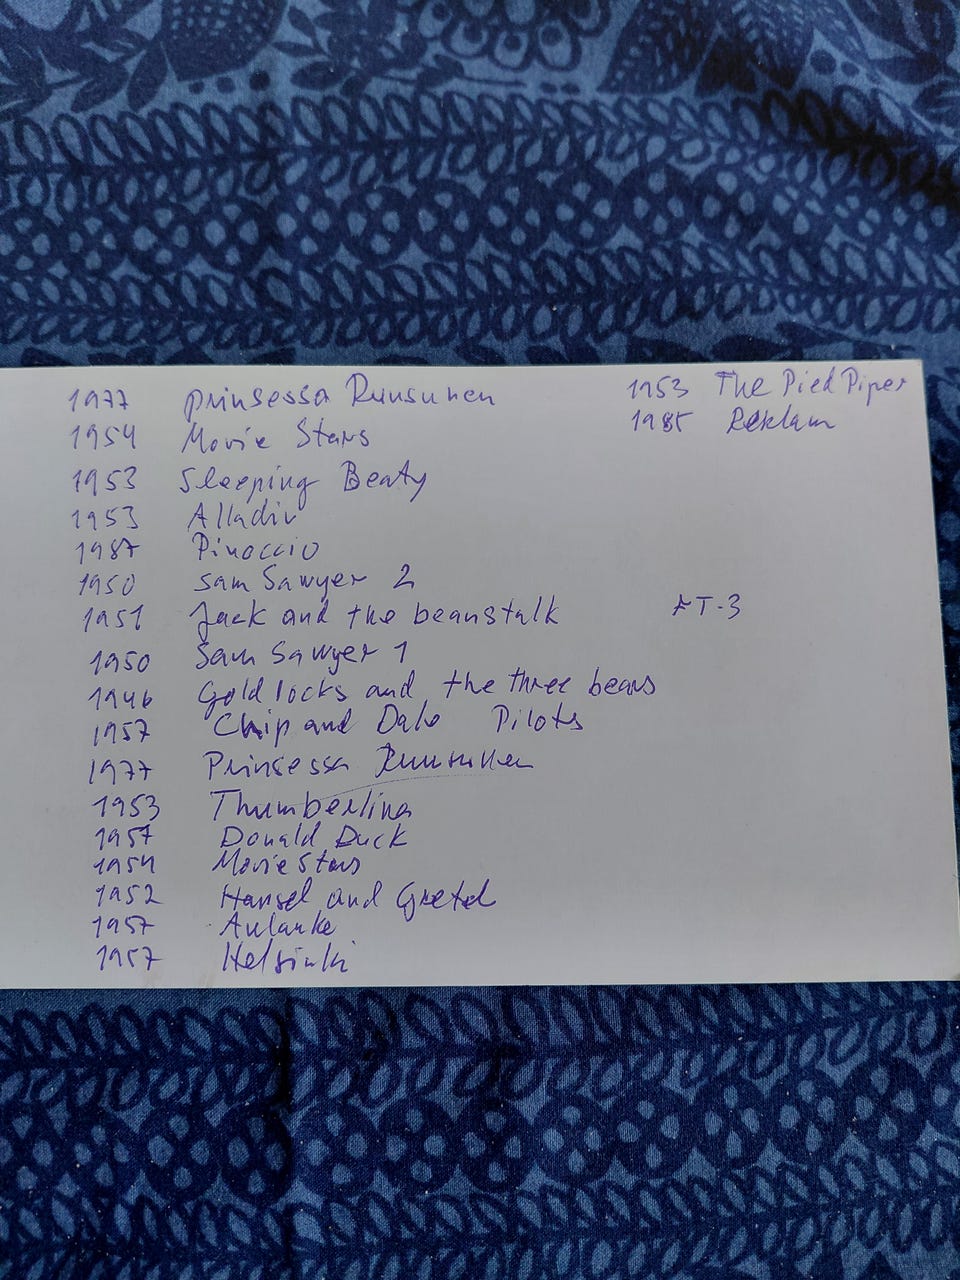 1977 Prinsessa Ruusunen
1954 Movie Stars
1953 Sleeping Beaty
1953 Alladin
1987 Pinoccio
1950 Sam Sawyer 2
1951 Jack and the beanstalk
1950 Sam Sawyer 1
1946 Gold locks and the three bears
1957 Chip and Dale Pilots
1977 Prinsessa Ruusunen
1953 Thumberlina
1957 Donald Duck
1954 Movie Stars
1952 Hansel and Gretel
1957 Aulanke
1957 Helsinki
1953 The Pied Piper
1985 Reklam
T-3